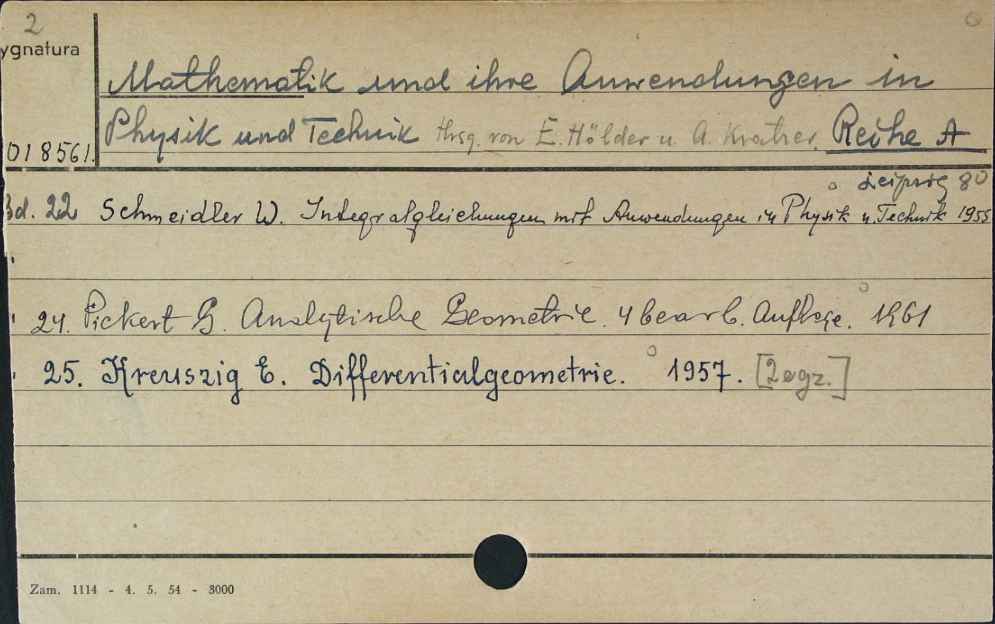 2
ygnatura
Mathematik und ihre Anwendungen in
Physik und Technik Hrsg. von E. Hölder u. A. Kratzer. Reihe A
018561.
Leipzig 8°
Bd. 22 Schmeidler W. Integralgleichungen mit Anwendungen in Physik u. Technik 1955
24. Pickert G. Analytische Geometrie. 4 bearb. Auflage. 1961
25. Kreuszig E. Differentialgeometrie. 1957. [2 egz.]
Zam. 1114 - 4. 5. 54 - 3000